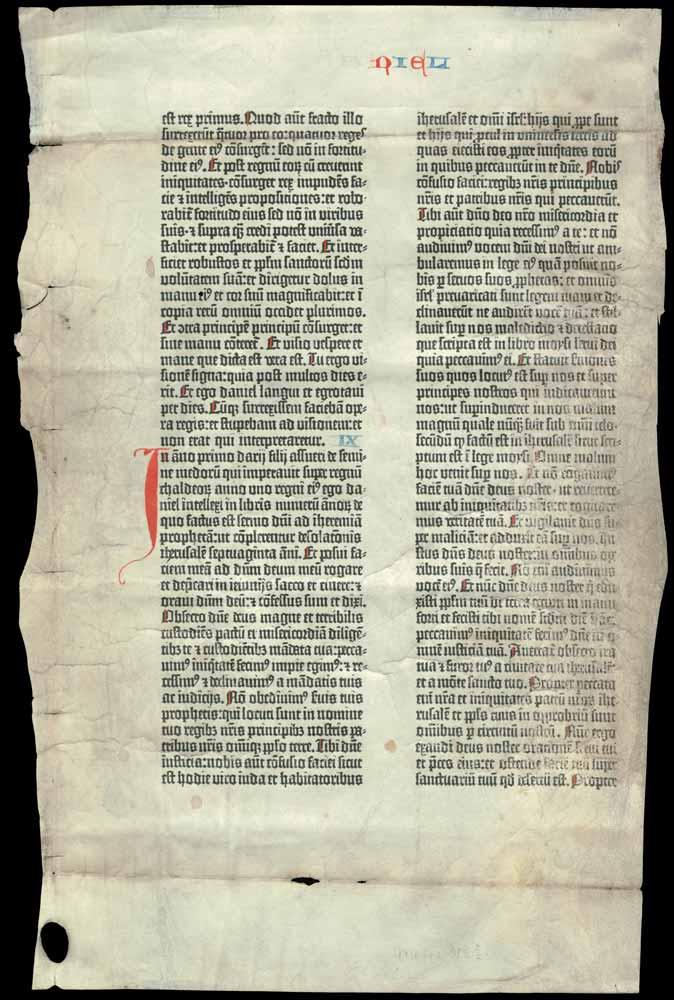 NIELI
est rex primus. Quod aūt fracto illo
surrexerūt q̄tuor pro eo: quatuor reges
de gente eiꝰ cōsurgēt: sed nō in fortitu-
dine eiꝰ. Et post regnū eoꝝ cū creuerint
iniquitates· cōsurget rex impudēs fa-
cie ⁊ intelligēs propositiones: et robo-
rabit̄ fortitudo eius sed nō in viribus
suis· ⁊ supra q̄ credi potest uniūsa va-
stabit: et prosperabit̄ ⁊ faciet. Et inter-
ficiet robustos et ppl̄m sanctorū scd̄m
volūtatem suā: et dirigetur dolus in
manu eiꝰ et cor suū magnificabit: et ī
copia rerū omniū occidet plurimos.
Et ꝯtra principē principū cōsurget: et
sine manu cōteret̄. Et visio vespere et
mane que dicta est vera est. Tu ergo vi-
sionē signa: quia post multos dies e-
rit. Et ego daniel langui et egrotaui
per dies. Cūqꝫ surrexissem faciebā ope-
ra regis: et stupebam ad visionem: et
non erat qui interpretaretur. IX
In āno primo darij filij assueri de semi-
ne medorū qui imperauit super regnū
chaldeoꝝ anno uno regni eiꝰ ego da-
niel intellexi in libris numerū annoꝝ de
quo factus est sermo dn̄i ad iheremiā
prophetā: ut cōplerentur desolatōnis
iherusalē septuaginta āni. Et posui fa-
ciem meā ad dn̄m deum meū rogare
et dep̄cari in ieiunijs sacco et cinere: ⁊
oraui dn̄m deū: ⁊ cōfessus sum et dixi.
Obsecro dn̄e deus magne et terribilis
custodiēs pactū et misericordiā diligē-
tibꝫ te ⁊ custodiētibꝫ mādata tua: pecca-
uimꝰ iniq̄tatē fecimꝰ impie egimꝰ: ⁊ re-
cessimꝰ ⁊ declinauimꝰ a mādatis tuis
ac iudicijs. Nō obediuimꝰ seruis tuis
prophetis: qui locuti sunt in nomine
tuo regibꝫ nr̄is principibꝫ nostris pa-
tribus nr̄is omniqꝫ pplo̅ terre. Tibi dn̄e
iusticia: nobis aut̄ cōfusio faciei sicut
est hodie viro iuda et habitatoribus
iherusalē et omī isrl̄: hijs qui ꝓpe sunt
et hijs qui procul in uniuersis terris ad
quas eiecisti eos ꝓpter iniq̄tates eorū
in quibus peccauerūt in te dn̄e. Nobis
cōfusio faciei: regibꝫ nr̄is principibus
nr̄is et patribus nr̄is qui peccauerūt.
Tibi aut̄ dn̄o deo nr̄o misericordia et
propiciatio quia recessimꝰ a te: et nō
audiuimꝰ vocem dn̄i dei nostri ut am-
bularemus in lege eiꝰ quā posuit no-
bis ꝑ seruos suos ꝓphetas: et omnis
isrl̄ preuaricati sunt legem tuam et de-
clinauerūt ne audirēt vocē tuā: et stil-
lauit suꝑ nos maledictio ⁊ detestatio
que scripta est in libro moysi serui dei
quia peccauimꝰ ei. Et statuit sermones
suos quos locutꝰ est suꝑ nos et super
principes nostros qui iudicauerunt
nos: ut suꝑinduceret in nos malum
magnū quale nūqꝫ fuit sub omī celo·
secūdū ꝙ factū est in iherusalē sicut scri-
ptum est ī lege moysi. Omne malum
hoc venit suꝑ nos. Et nō rogauimꝰ
faciē tuā dn̄e deus noster· ut reuertere-
mur ab iniquitatibꝫ nr̄is: et cogitare-
mus veritatē tuā. Et vigilauit dn̄s su-
per maliciā: et adduxit eā suꝑ nos. Iu-
stus dn̄s deus noster: in omnibus oꝑ-
ribus suis q̄ fecit. Nō em̄ audiuimus
vocē eiꝰ. Et nūc dn̄e deus noster q̄ edu-
xisti ppl̄m tuū de terra egypti in manu
forti et fecisti tibi nomē scd̄m diē hāc:
peccauimꝰ iniquitatē fecimꝰ dn̄e in o-
mnē iusticiā tuā. Auertat̄ obsecro ira
tua ⁊ furor tuꝰ a ciuitate tua iherusalē·
et a mōte sancto tuo. Propter peccata
em̄ nr̄a et iniquitates patrū nr̄oꝝ ihe-
rusalē et ppl̄s tuus in opprobriū sunt
omībus ꝑ circuitū nostrū. Nūc ergo
exaudi deus noster orationē serui tui
et p̄ces eius: et ostende faciē tuā super
sanctuariū tuū qd̄ desertū est. Propter